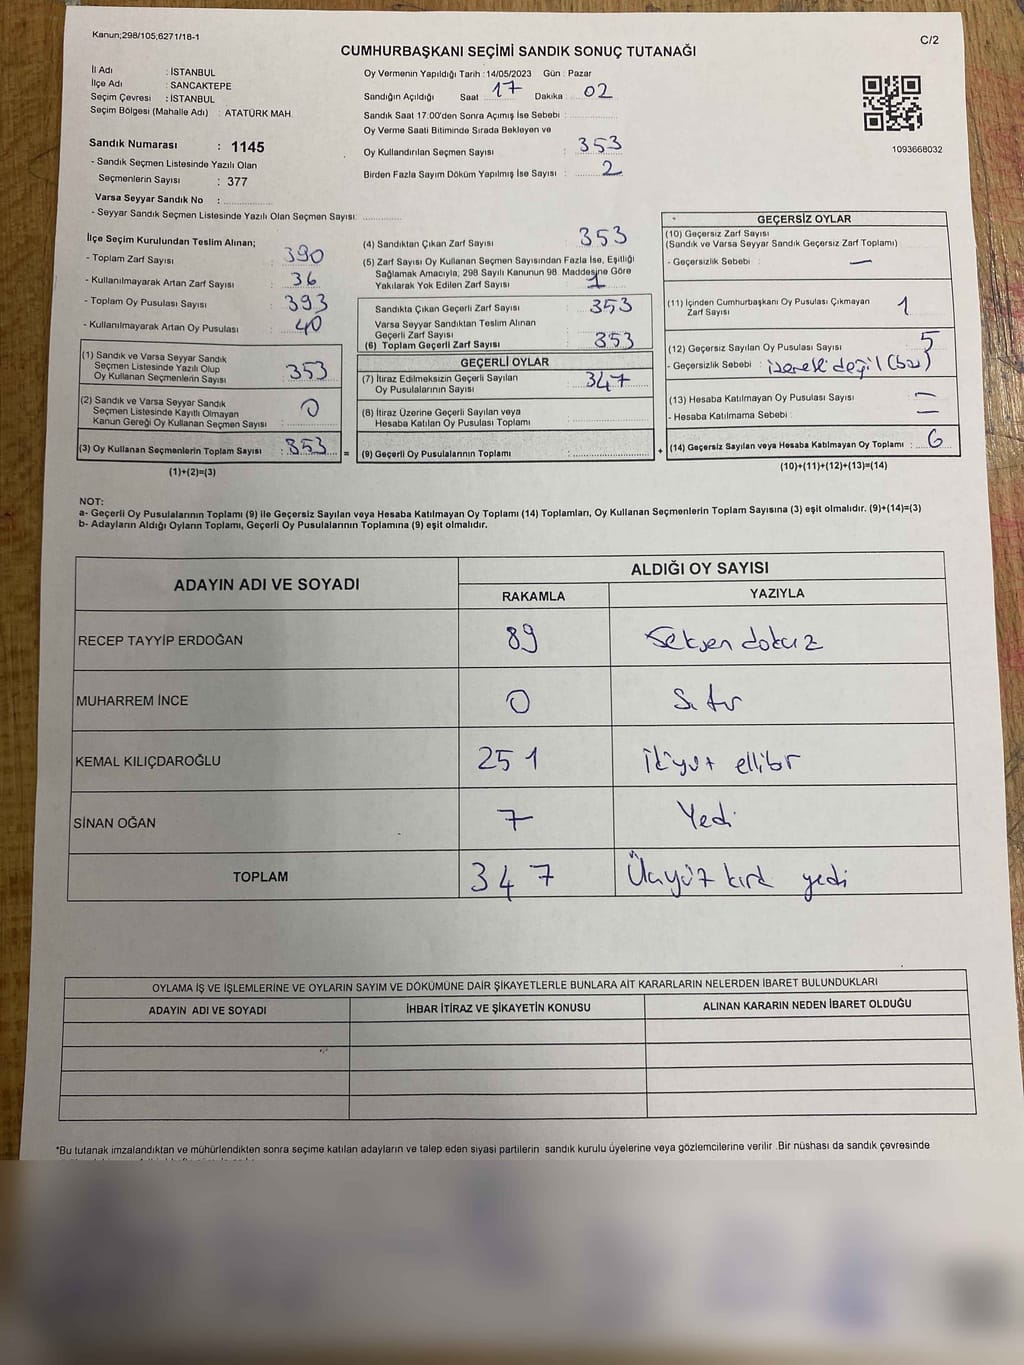 Kanun;298/105;6271/18-1
C/2
CUMHURBAŞKANI SEÇİMİ SANDIK SONUÇ TUTANAĞI
İl Adı : İSTANBUL
İlçe Adı : SANCAKTEPE
Seçim Çevresi : İSTANBUL
Seçim Bölgesi (Mahalle Adı) : ATATÜRK MAH.
Sandık Numarası : 1145
- Sandık Seçmen Listesinde Yazılı Olan
Seçmenlerin Sayısı : 377
Varsa Seyyar Sandık No :
- Seyyar Sandık Seçmen Listesinde Yazılı Olan Seçmen Sayısı:
Oy Vermenin Yapıldığı Tarih : 14/05/2023 Gün : Pazar
Sandığın Açıldığı Saat 17 Dakika 02
Sandık Saat 17:00'den Sonra Açımış İse Sebebi :
Oy Verme Saati Bitiminde Sırada Bekleyen ve
Oy Kullandırılan Seçmen Sayısı : 353
Birden Fazla Sayım Döküm Yapılmış İse Sayısı : 2
1093668032
İlçe Seçim Kurulundan Teslim Alınan;
- Toplam Zarf Sayısı : 390
- Kullanılmayarak Artan Zarf Sayısı : 36
- Toplam Oy Pusulası Sayısı : 393
- Kullanılmayarak Artan Oy Pusulası : 40
(1) Sandık ve Varsa Seyyar Sandık
Seçmen Listesinde Yazılı Olup
Oy Kullanan Seçmenlerin Sayısı : 353
(2) Sandık ve Varsa Seyyar Sandık
Seçmen Listesinde Kayıtlı Olmayan
Kanun Gereği Oy Kullanan Seçmen Sayısı : 0
(3) Oy Kullanan Seçmenlerin Toplam Sayısı : 353 =
(1)+(2)=(3)
(4) Sandıktan Çıkan Zarf Sayısı : 353
(5) Zarf Sayısı Oy Kullanan Seçmen Sayısından Fazla İse, Eşitliği
Sağlamak Amacıyla, 298 Sayılı Kanunun 98. Maddesine Göre
Yakılarak Yok Edilen Zarf Sayısı : 1
Sandıkta Çıkan Geçerli Zarf Sayısı : 353
Varsa Seyyar Sandıktan Teslim Alınan
Geçerli Zarf Sayısı :
(6) Toplam Geçerli Zarf Sayısı : 353
GEÇERLİ OYLAR
(7) İtiraz Edilmeksizin Geçerli Sayılan
Oy Pusulalarının Sayısı : 347
(8) İtiraz Üzerine Geçerli Sayılan veya
Hesaba Katılan Oy Pusulası Toplamı :
(9) Geçerli Oy Pusulalarının Toplamı : +
GEÇERSİZ OYLAR
(10) Geçersiz Zarf Sayısı
(Sandık ve Varsa Seyyar Sandık Geçersiz Zarf Toplamı)
- Geçersizlik Sebebi : —
(11) İçinden Cumhurbaşkanı Oy Pusulası Çıkmayan
Zarf Sayısı : 1
(12) Geçersiz Sayılan Oy Pusulası Sayısı : 5
- Geçersizlik Sebebi : değil
(13) Hesaba Katılmayan Oy Pusulası Sayısı : —
- Hesaba Katılmama Sebebi : —
(14) Geçersiz Sayılan veya Hesaba Katılmayan Oy Toplamı : 6
(10)+(11)+(12)+(13)=(14)
NOT:
a- Geçerli Oy Pusulalarının Toplamı (9) ile Geçersiz Sayılan veya Hesaba Katılmayan Oy Toplamı (14) Toplamları, Oy Kullanan Seçmenlerin Toplam Sayısına (3) eşit olmalıdır. (9)+(14)=(3)
b- Adayların Aldığı Oyların Toplamı, Geçerli Oy Pusulalarının Toplamına (9) eşit olmalıdır.
ADAYIN ADI VE SOYADI
ALDIĞI OY SAYISI
RAKAMLA YAZIYLA
RECEP TAYYİP ERDOĞAN 89 Seksen dokuz
MUHARREM İNCE 0 Sıfır
KEMAL KILIÇDAROĞLU 251 İkiyüz ellibir
SİNAN OĞAN 7 Yedi
TOPLAM 347 Üçyüz kırk yedi
OYLAMA İŞ VE İŞLEMLERİNE VE OYLARIN SAYIM VE DÖKÜMÜNE DAİR ŞİKAYETLERLE BUNLARA AİT KARARLARIN NELERDEN İBARET BULUNDUKLARI
ADAYIN ADI VE SOYADI İHBAR İTİRAZ VE ŞİKAYETİN KONUSU ALINAN KARARIN NEDEN İBARET OLDUĞU
*Bu tutanak imzalandıktan ve mühürlendikten sonra seçime katılan adayların ve talep eden siyasi partilerin sandık kurulu üyelerine veya gözlemcilerine verilir .Bir nüshası da sandık çevresinde